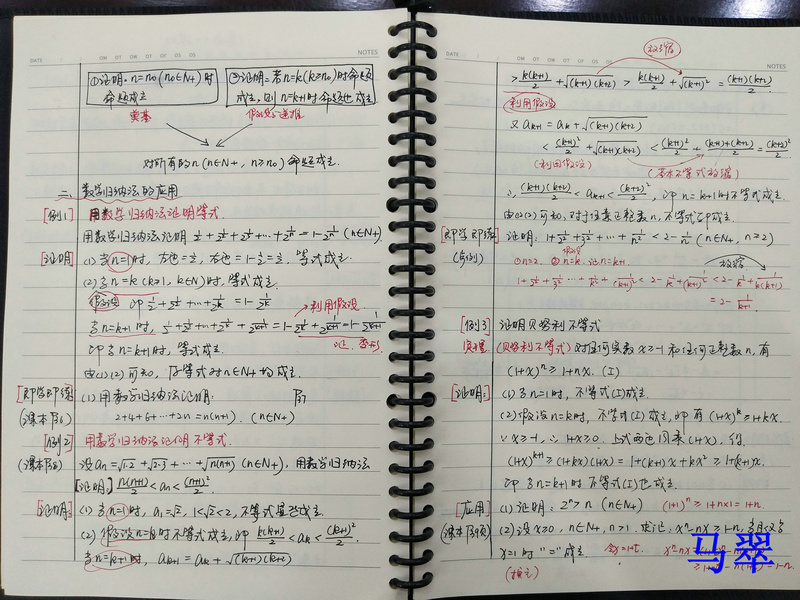 DATE
NOTES
①证明:n=n₀(n₀∈N₊)时 命题成立
②证明:若n=k(k≥n₀)时命题成立,则n=k+1时命题也成立
奠基
假设与递推
对所有的n(n∈N₊,n≥n₀)命题成立.
二、数学归纳法的应用
[例1] 用数学归纳法证明等式.
用数学归纳法证明 1/2+1/2²+1/2³+…+1/2ⁿ=1-1/2ⁿ (n∈N₊)
[证明] (1)当n=1时,左边=1/2,右边=1-1/2=1/2,等式成立.
(2)当n=k(k≥1,k∈N)时,等式成立.
假设 即1/2+1/2²+…+1/2ᵏ=1-1/2ᵏ
利用假设
当n=k+1时,1/2+1/2²+…+1/2ᵏ+1/2ᵏ⁺¹=1-1/2ᵏ+1/2ᵏ⁺¹=1-1/2ᵏ⁺¹
即当n=k+1时,等式成立.
由(1)(2)可知,等式对n∈N₊均成立.
[即学即练] (1)用数学归纳法证明:
(课本P6) 2+4+6+…+2n=n(n+1).(n∈N₊)
[例2] 用数学归纳法证明不等式.
(课本P8) 设aₙ=√1·2+√2·3+…+√n(n+1) (n∈N₊),用数学归纳法
[证明] n(n+1)/2<aₙ<(n+1)²/2.
[证明] (1)当n=1时,a₁=√2,1<√2<2,不等式显然成立.
(2)假设n=k时不等式成立,即k(k+1)/2<aₖ<(k+1)²/2.
当n=k+1时,aₖ₊₁=aₖ+√(k+1)(k+2)
DATE
NOTES
放缩
>k(k+1)/2+√(k+1)(k+2)>k(k+1)/2+√(k+1)²=(k+1)(k+2)/2
利用假设
又aₖ₊₁=aₖ+√(k+1)(k+2)
<(k+1)²/2+√(k+1)(k+2)<(k+1)²/2+(k+1)+(k+2)/2=(k+2)²/2
(利用假设) (基本不等式放缩)
∴(k+1)(k+2)/2<aₖ₊₁<(k+2)²/2,即n=k+1时不等式成立.
由(1)(2)可知,对于任意正整数n,不等式都成立.
[即学即练] 证明:1+1/2²+1/3²+…+1/n²<2-1/n (n∈N₊,n≥2)
假设
①n=2. ②n=k, 证n=k+1
放缩
1+1/2²+1/3²…+1/k²+1/(k+1)²<2-1/k+1/(k+1)²<2-1/k+1/k(k+1)
=2-1/(k+1)
[例3] 证明贝努利不等式
(贝努利不等式)对任何实数x≥-1和任何正整数n,有
(1+x)ⁿ≥1+nx.(I)
[证明:] (1)当n=1时,不等式(I)成立.
(2)假设n=k时,不等式(I)成立,即有(1+x)ᵏ≥1+kx.
∵x≥-1,∴1+x≥0.上式两边同乘(1+x),得
(1+x)ᵏ⁺¹≥(1+kx)(1+x)=1+(k+1)x+kx²≥1+(k+1)x.
即当n=k+1时不等式(I)也成立.
[应用] (1)证明:2ⁿ>n (n∈N₊) (1+1)ⁿ≥1+n×1=1+n.
(2)设x>0,n∈N₊,n>1.求证:xⁿ-nx≥1-n,当且仅当
x=1时"="成立 令x=1+t.
马翠